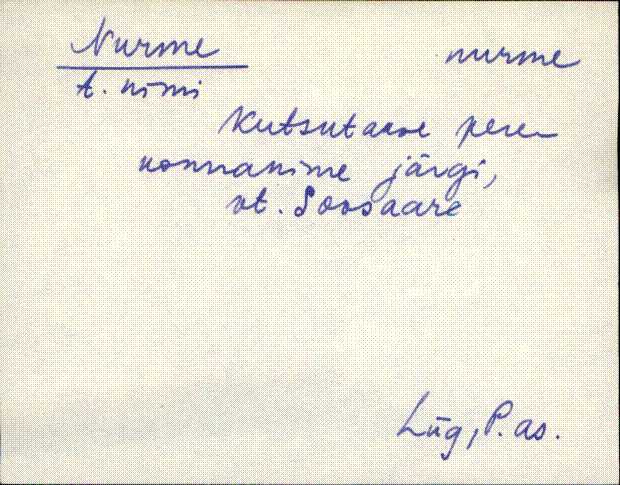 Nurme nurme
t. nimi
Kutsutakse pere-
konnanime järgi,
vt. Soosaare
Lüg, P. as.